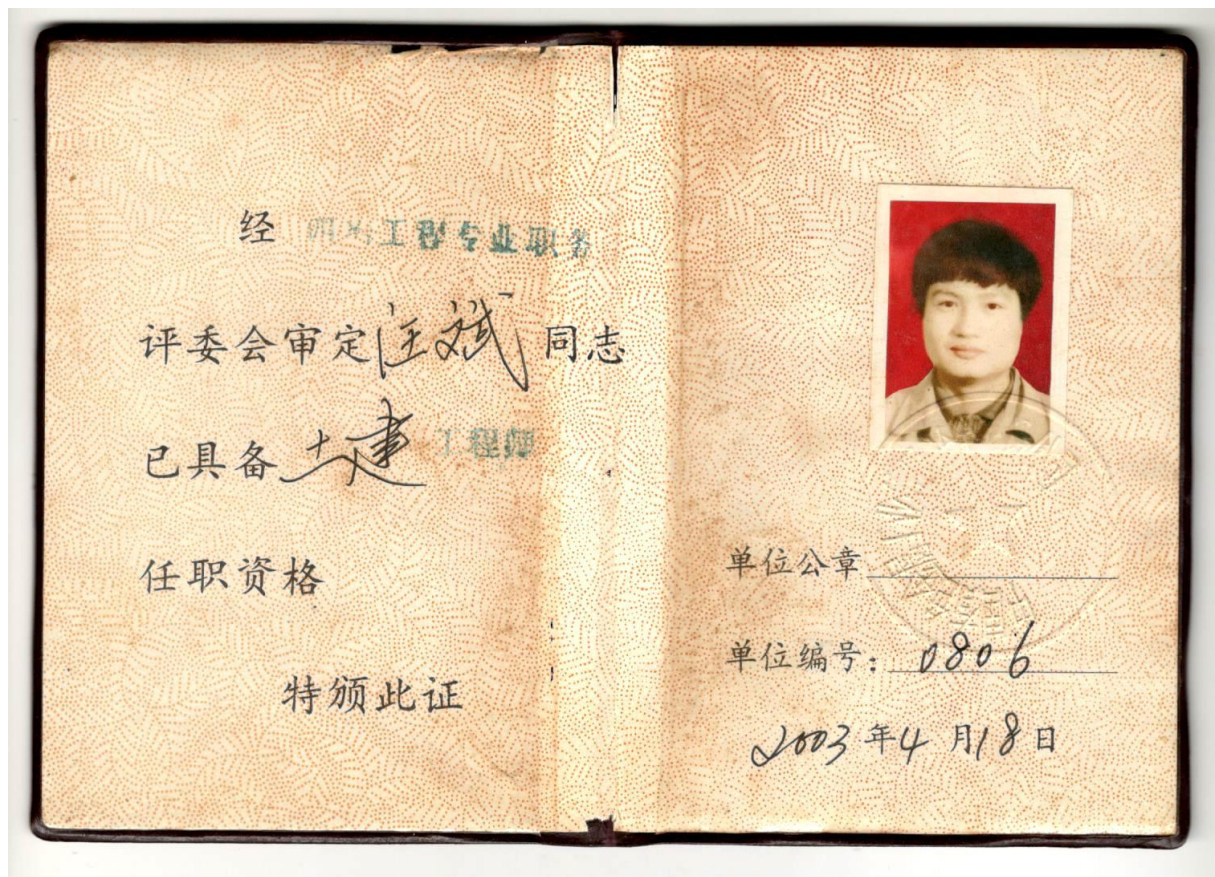 经 工程专业职务
评委会审定汪斌同志
已具备土建工程师
任职资格
特颁此证
单位公章
单位编号：0806
2003年4月18日